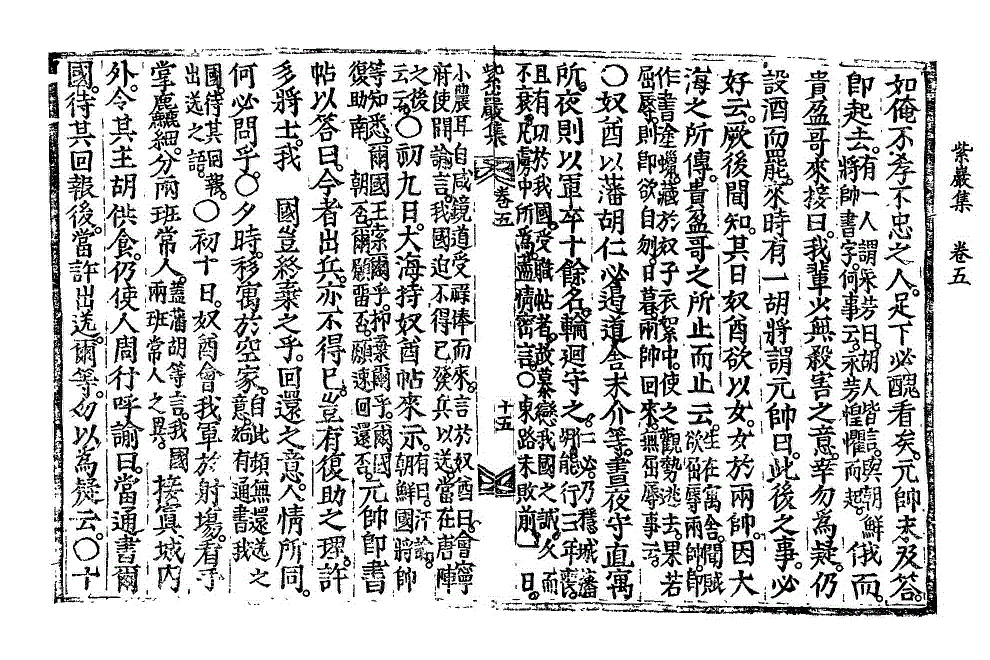 紫巖集　卷五
如俺不孝不忠之人。足下必醜看矣。元帥未及答。
卽起去。有一人謂永芳曰。胡人皆言。與朝鮮
將帥書字何事云。永芳惶懼而起。俄而
貴盈哥來接曰。我輩必無殺害之意。幸勿爲疑。仍
設酒而罷。來時有一胡將謂元帥曰。此後之事。必
好云。厥後聞知。其日奴酋欲以女女於兩帥。因大
海之所傳。貴盈哥之所止而止云。生在寓舍。聞賊
欲屈辱兩帥。卽
作書塗蠟。藏於奴子衣絮中。使之觀勢逃去。果若
屈辱。則卽欲自刎。日暮。兩帥回來。無屈辱事云。
○奴酋以藩胡仁必道道舍末介等。晝夜守直寓
所。夜則以軍卒十餘名。輪迴守之。仁必。乃穩城藩
胡。能行三年喪。
且有切於我國。受職帖者。故慕戀我國之誠。久而
不衰。凡虜中所爲。盡情密言。○東路未敗前一日。
紫巖集　卷五　十五
小農耳自咸鏡道受祿俸而來。言於奴酋曰。會寧
府使開諭言。我國迫不得已發兵以送。當在唐陣
之後云云。○初九日。大海持奴酋帖來示。有曰。汗諭
朝鮮國將帥
等知悉。爾國王索爾乎。抑棄爾乎。爾國
復助南朝否。爾願留否。願速回還否。元帥卽書
帖以答曰。今者出兵。亦不得已。豈有復助之理。許
多將士。我　國豈終棄之乎。回還之意。人情所同。
何必問乎。○夕時。移寓於空家。自此頗無還送之
意。始有通書我
國。待其回報。
出送之語。○初十日。奴酋會我軍於射場。看手
掌麤細。分兩班常人。蓋藩胡等言。我國
兩班常人之異。　接寘城內
外。令其主胡供食。仍使人周行呼諭曰。當通書爾
國。待其回報後。當許出送。爾等勿以爲疑云。○十